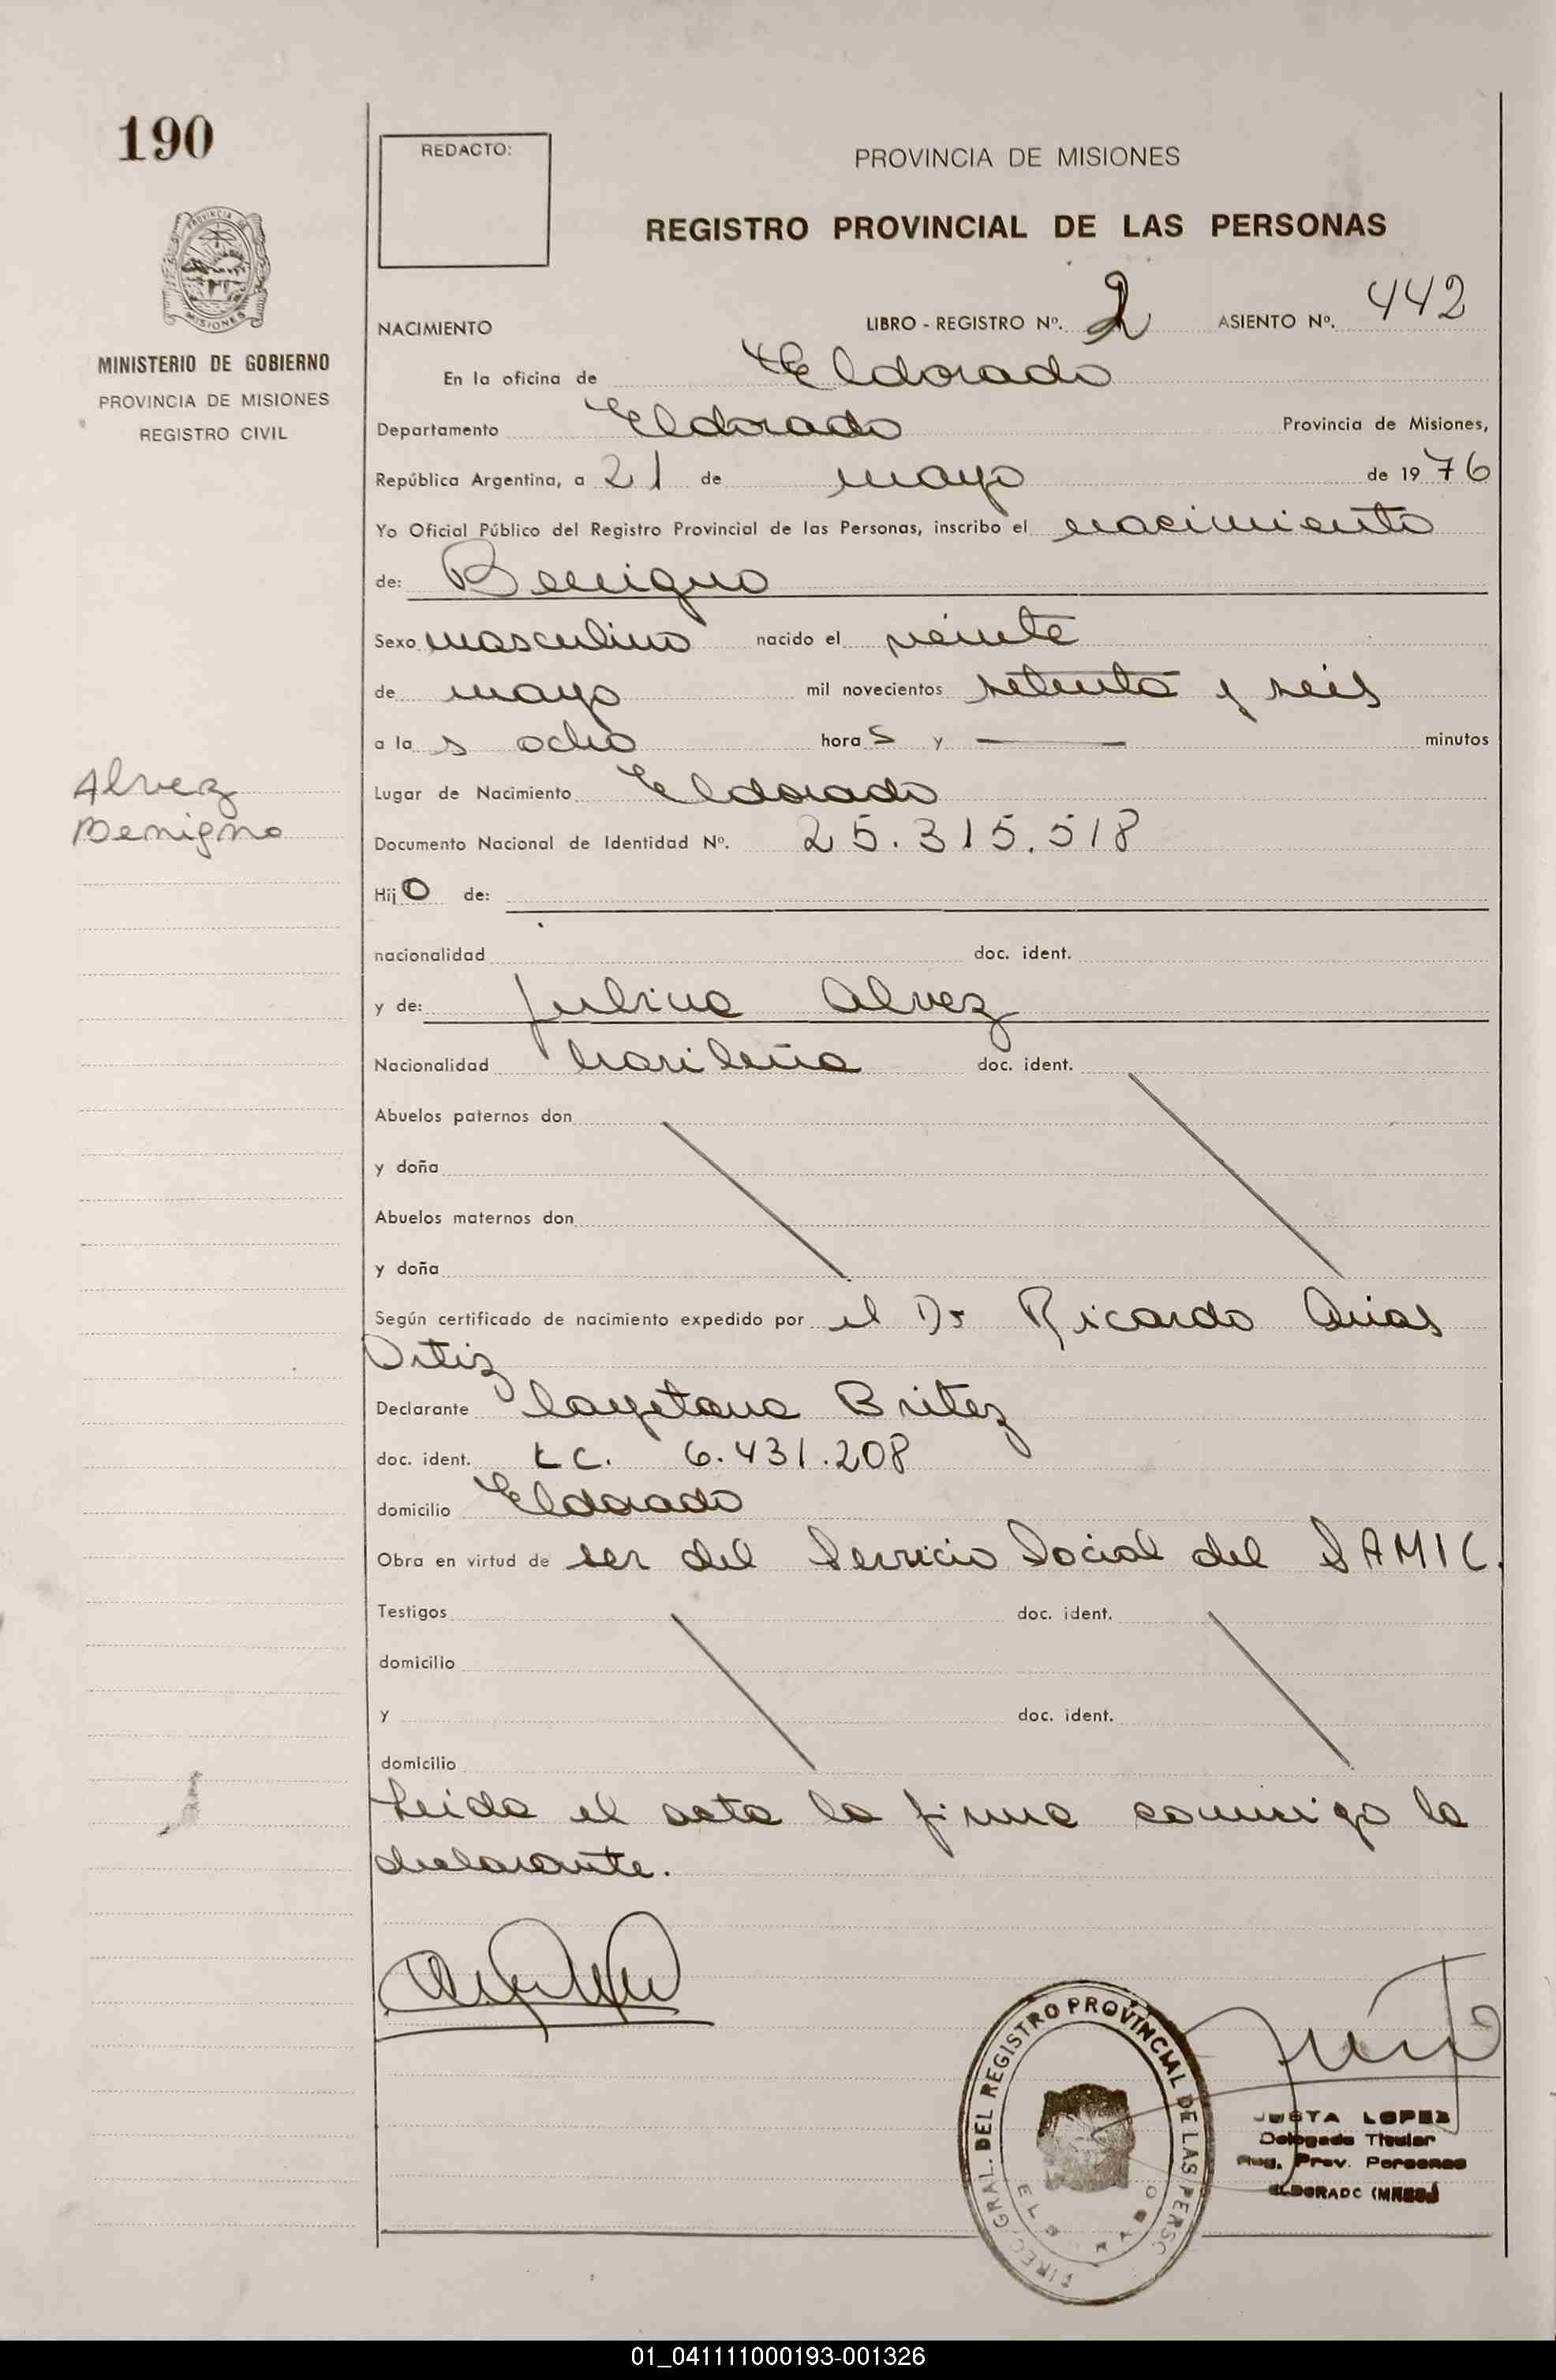 190
REDACTO:
PROVINCIA DE MISIONES
REGISTRO PROVINCIAL DE LAS PERSONAS
PROVINCIA DE
MISIONES
MINISTERIO DE GOBIERNO
PROVINCIA DE MISIONES
REGISTRO CIVIL
NACIMIENTO LIBRO - REGISTRO Nº. 2 ASIENTO Nº. 442
En la oficina de Eldorado
Departamento Eldorado Provincia de Misiones,
República Argentina, a 21 de mayo de 1976
Yo Oficial Público del Registro Provincial de las Personas, inscribo el nacimiento
de: Benigno
Sexo masculino nacido el veinte
de mayo mil novecientos setenta y seis
a las ocho horas y — minutos
Alvez
Benigno
Lugar de Nacimiento Eldorado
Documento Nacional de Identidad Nº. 25.315.518
Hijo de:
nacionalidad doc. ident.
y de: Julina Alvez
Nacionalidad brasileña doc. ident.
Abuelos paternos don
y doña
Abuelos maternos don
y doña
Según certificado de nacimiento expedido por el Dr Ricardo Arias
Ortiz
Declarante Cayetana Britez
doc. ident. L C. 6.431.208
domicilio Eldorado
Obra en virtud de ser del Servicio Social del SAMIC.
Testigos doc. ident.
domicilio
y doc. ident.
domicilio
Leida el acta la firma conmigo la
declarante.
DIREC. GRAL. DEL REGISTRO PROVINCIAL DE LAS PERSO
JUSTA LOPEZ
Delegada Titular
Reg. Prov. Personas
ELDORADO (MNES)
01_041111000193-001326